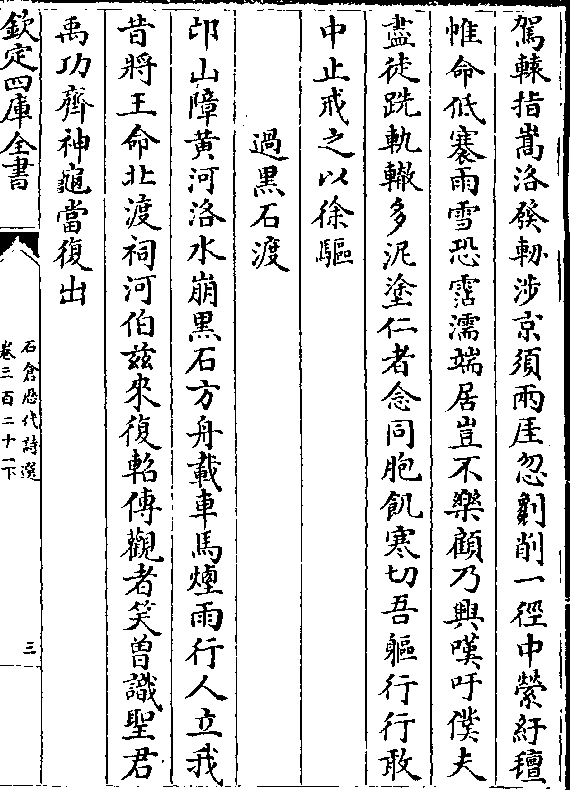 駕轅指嵩洛發軔涉京須兩厓忽劃削一徑中縈紆氊
帷命低褰雨雪恐霑濡端居豈不樂顧乃興嘆吁僕夫
盡徒跣軌轍多泥塗仁者念同胞飢寒切吾軀行行敢
中止戒之以徐驅
過黒石渡
邙山障黄河洛水崩黒石方舟載車馬煙雨行人立我
昔將王命北渡祠河伯兹來復軺傳觀者笑曽識聖君
禹功齊神龜當復出
欽定四庫全書
石倉歴代詩選
卷三百二十一下
三